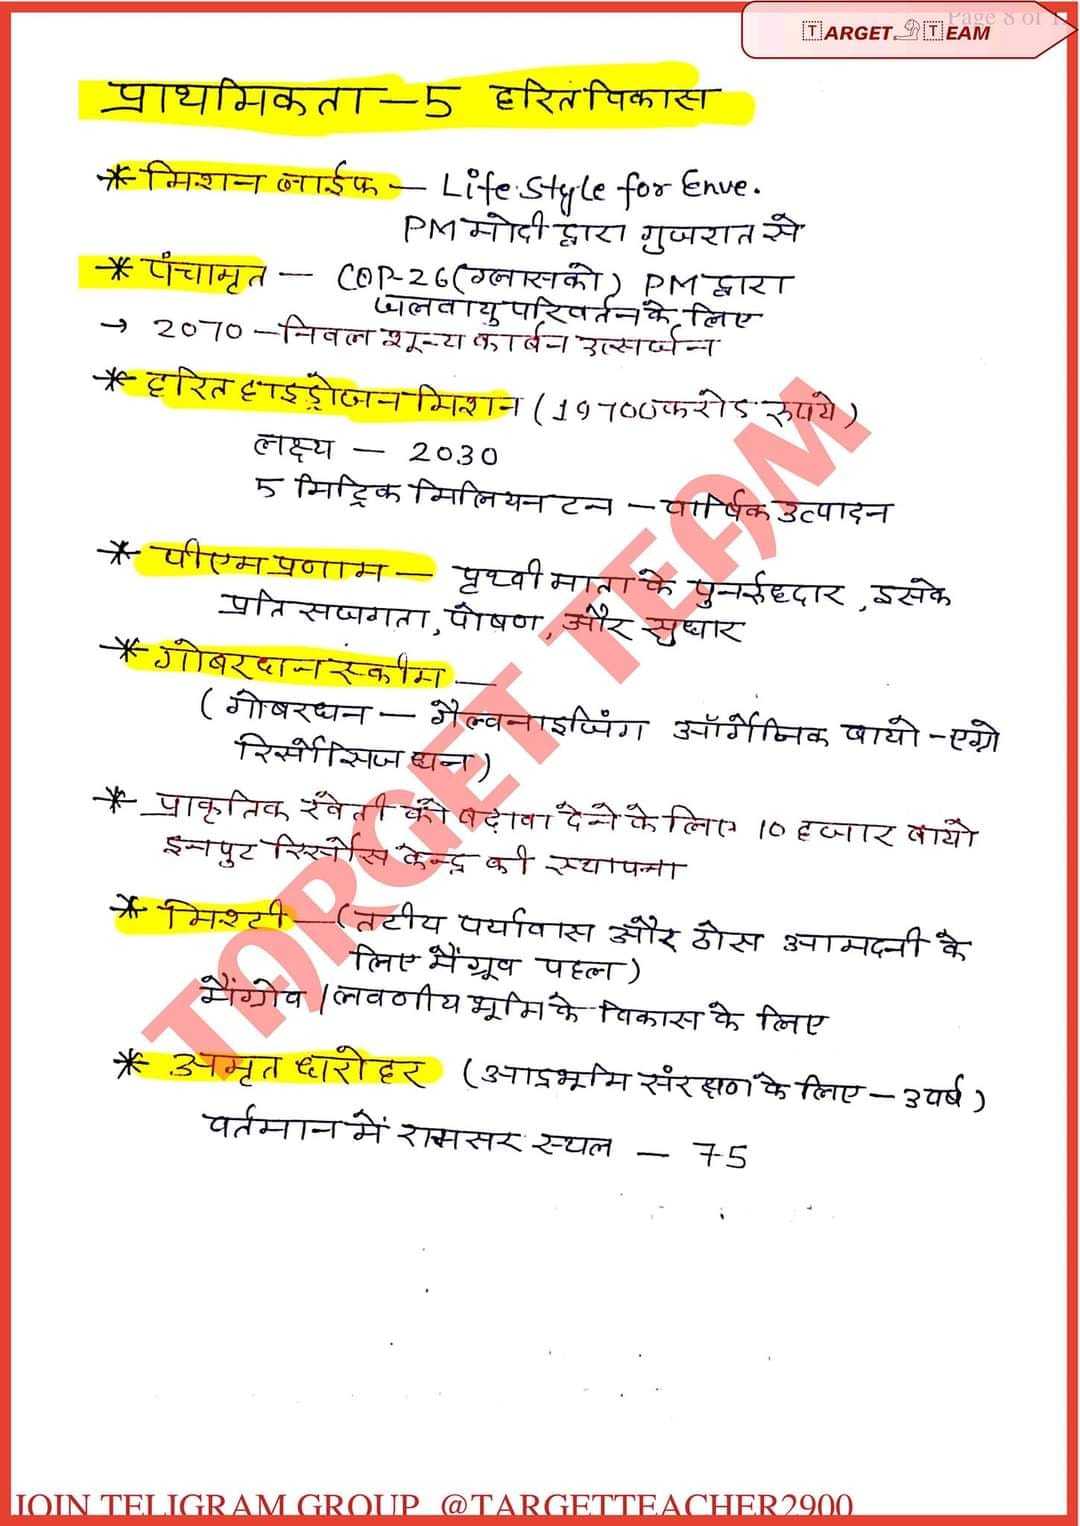 Page 8 of 1
TARGET TEAM
प्राथमिकता - 5 हरित विकास
* मिशन लाईफ - Life Style for Enve.
PM मोदी द्वारा गुजरात से
* पंचामृत - COP-26 (ग्लासको) PM द्वारा
जलवायु परिवर्तन के लिए
→ 2070 - निवल शून्य कार्बन उत्सर्जन
* हरित हाइड्रोजन मिशन (19700 करोड़ रुपये)
लक्ष्य - 2030
5 मिट्रिक मिलियन टन - वार्षिक उत्पादन
* पीएम प्रणाम - पृथ्वी माता के पुनर्रुद्दार, इसके
प्रति सजगता, पोषण, और सुधार
* गोबरधन स्कीम -
(गोबरधन - गैल्वनाइजिंग ऑर्गेनिक बायो - एग्रो
रिर्सोसिज धन)
* प्राकृतिक खेती को बढ़ावा देने के लिए 10 हजार बायो
इनपुट रिर्सोस केन्द्र की स्थापना
* मिश्टी - (तटीय पर्यावास और ठोस आमदनी के
लिए मैंग्रूव पहल)
मैंग्रोव / लवणीय भूमि के विकास के लिए
* अमृत धरोहर (आद्रभूमि संरक्षण के लिए - 3 वर्ष)
वर्तमान में रामसर स्थल - 75
TARGET TEAM
JOIN TELIGRAM GROUP @TARGETTEACHER2900